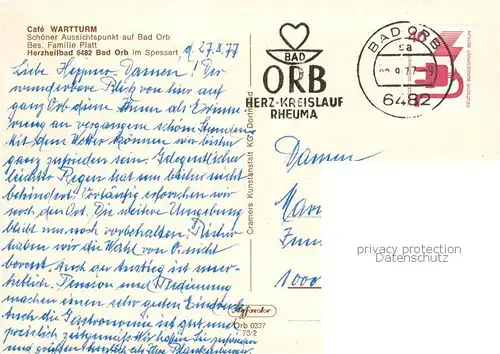 Café WARTTURM
Schöner Aussichtspunkt auf Bad Orb
Bes. Familie Platt
Herzheilbad 6482 Bad Orb im Spessart
27.8.77
Liebe Damen! Der
wunderbare Blick von hier auf
ganz Orb diene Ihnen als Erinne-
rung an vergangene schöne Stunden.
Mit dem Wetter können wir bisher
ganz zufrieden sein. Gelegentlicher
leichter Regen hat uns bisher nicht
behindert. Vorläufig erforschen wir
noch den Ort. Die weitere Umgebung
bleibt uns noch vorbehalten. Bisher
haben wir die Wahl von O. nicht
bereut. Auch der Anstieg ist uner-
heblich. Pension und Bedienung
machen einen sehr guten Eindruck
Auch die Gastronomie ist gut und
preislich zeitgemäß. Wir hoffen Sie zufrieden
und grüßen herzlich als Ihre
Cramers Kunstanstalt KG, Dortmund
Orb 0337
BAD
ORB
HERZ-KREISLAUF
RHEUMA
BAD ORB
6482
DEUTSCHE BUNDESPOST BERLIN
Damen
1000
privacy protection
Datenschutz